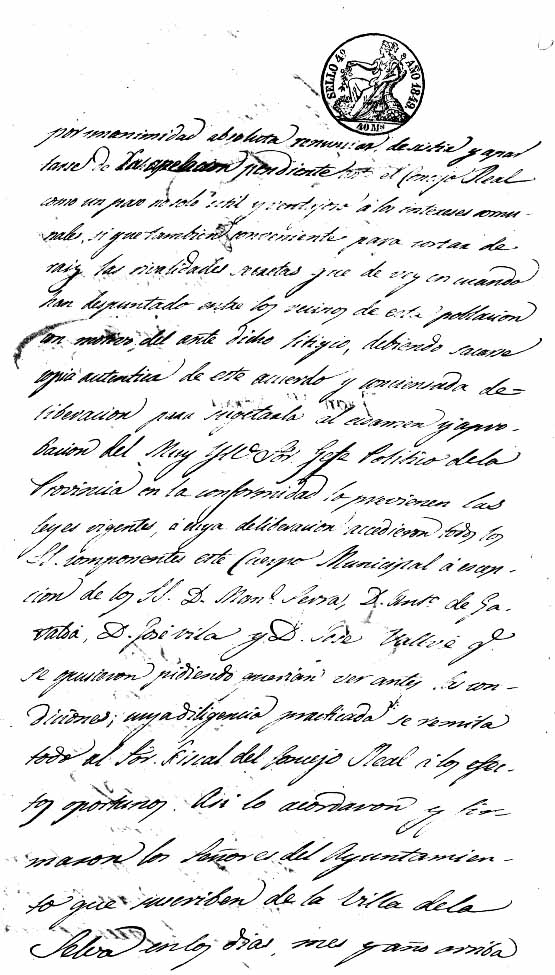 SELLO 4º AÑO 1849
40 Ms
por unanimidad absoluta renunciar, desistir y apar
tarse de la apelacion pendiente ante el Consejo Real
como un paso no solo util y ventajoso á los intereses comu-
nales, si que tambien conveniente para cortar de
raiz las rivalidades que de vez en cuando
han despuntado entre los vecinos de esta poblacion
con motivo del ante dicho litigio, debiendo sacarse
copia autentica de este acuerdo y concienzada de=
liberacion para sugetarla al ecsamen y apro-
bacion del Muy Yltre Sor. Gefe Politico de la
Provincia en la conformidad lo previenen las
leyes vigentes, á cuya deliberacion accedieron todos los
SS. componentes este Cuerpo Municipal á escep-
cion de los SS. D. Manl. Serra, D. Anto. de Ga-
valdá, D. José Vila y D. José Vallvé qe.
se opusieron pidiendo querian ver antes las con-
diciones; cuya diligencia practicada se remita
todo al Sor. Fiscal del Consejo Real á los efec-
tos oportunos. Asi lo acordaron y fir-
maron los Señores del Ayuntamien-
to que suscriben de la Villa de la
Selva en los dias, mes y año arriba